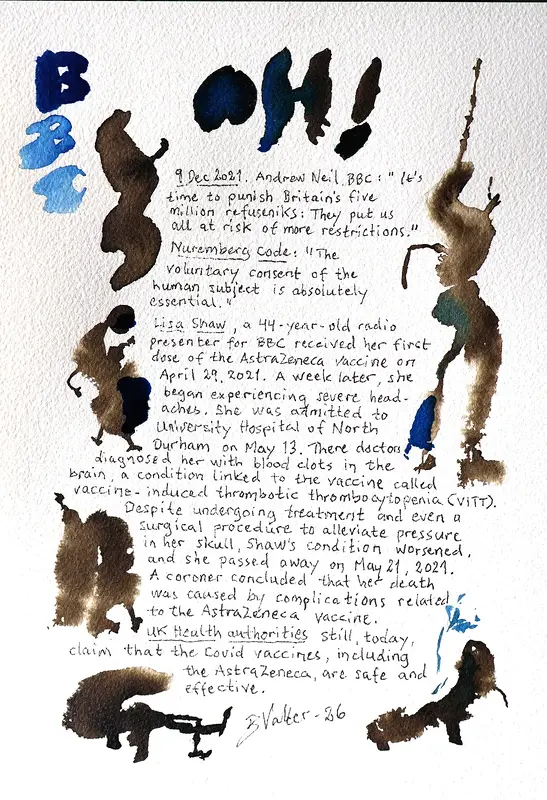 BBC
OH!
9 Dec 2021. Andrew Neil BBC: "It's
time to punish Britain's five
million refuseniks: They put us
all at risk of more restrictions."
Nuremberg Code: "The
voluntary consent of the
human subject is absolutely
essential."
Lisa Shaw, a 44-year-old radio
presenter for BBC received her first
dose of the AstraZeneca vaccine on
April 29, 2021. A week later, she
began experiencing severe head-
aches. She was admitted to
University Hospital of North
Durham on May 13. There doctors
diagnosed her with blood clots in the
brain, a condition linked to the vaccine called
vaccine-induced thrombotic thrombocytopenia (VITT).
Despite undergoing treatment and even a
surgical procedure to alleviate pressure
in her skull, Shaw's condition worsened,
and she passed away on May 21, 2021.
A coroner concluded that her death
was caused by complications related
to the AstraZeneca vaccine.
UK Health authorities still, today,
claim that the Covid vaccines, including
the AstraZeneca, are safe and
effective.
B Valter - 26